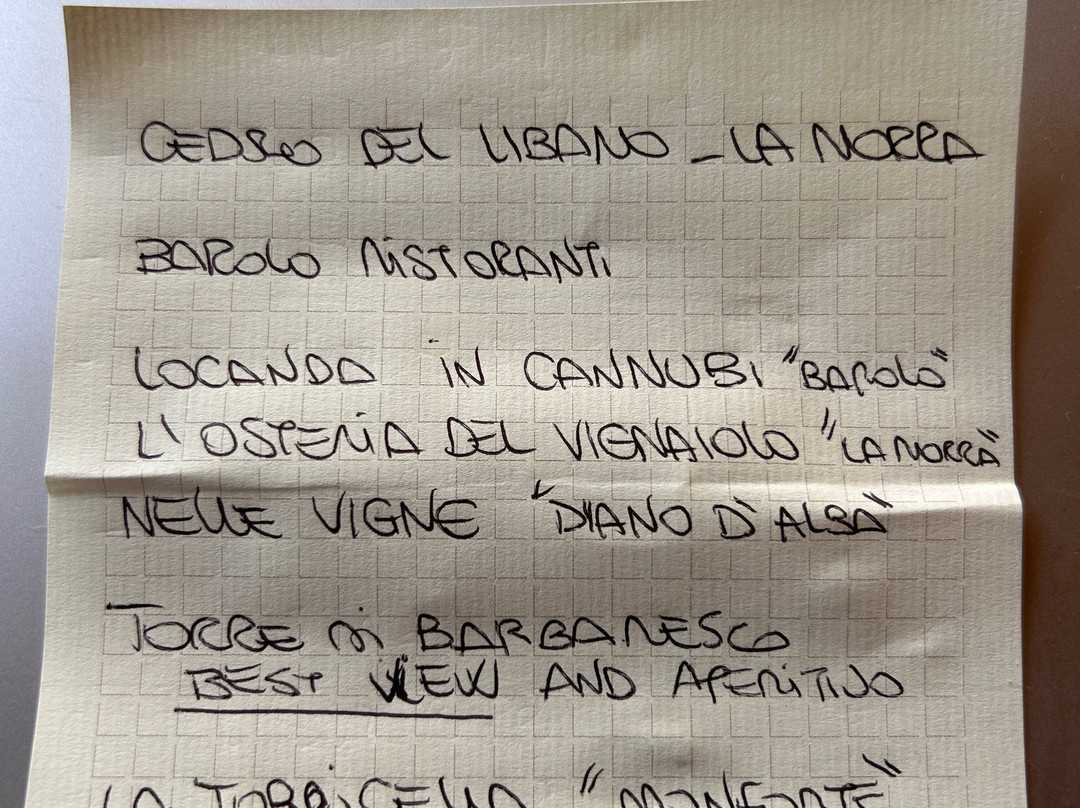 CEDRO DEL LIBANO - LA MORRA
BAROLO RISTORANTI
LOCANDA IN CANNUBI "BAROLO"
L'OSTERIA DEL VIGNAIOLO "LA MORRA"
NELLE VIGNE "DIANO D'ALBA"
TORRE DI BARBARESCO
BEST VIEW AND APERITIVO
LA TORRICELLA "MONFORTE"